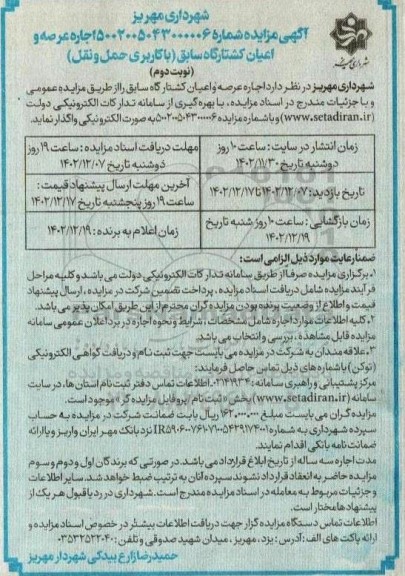 شهرداری مهریز
آگهی مزایده شماره ۵۰۰۲۰۰۵۰۴۳۰۰۰۰۰۶ اجاره عرصه و
اعیان کشتارگاه سابق (با کاربری حمل و نقل)
(نوبت دوم)
شهرداری مهریز
شهرداری مهریز در نظر دارد اجاره عرصه و اعیان کشتار گاه سابق را از طریق مزایده عمومی
و با جزئیات مندرج در اسناد مزایده، با بهره گیری از سامانه تدارکات الکترونیکی دولت
(www.setadiran.ir) و با شماره مزایده ۵۰۰۲۰۰۵۰۴۳۰۰۰۰۰۶ به صورت الکترونیکی واگذار نماید.
زمان انتشار در سایت: ساعت ۱۰ روز
دوشنبه تاریخ ۱۴۰۲/۱۱/۳۰
مهلت دریافت اسناد مزایده: ساعت ۱۹ روز
دوشنبه تاریخ ۱۴۰۲/۱۲/۰۷
تاریخ بازدید: ۱۴۰۲/۱۲/۰۷ تا ۱۴۰۲/۱۲/۱۷
آخرین مهلت ارسال پیشنهاد قیمت:
ساعت ۱۹ روز پنجشنبه تاریخ ۱۴۰۲/۱۲/۱۷
زمان بازگشایی: ساعت ۱۰ روز شنبه تاریخ
۱۴۰۲/۱۲/۱۹
زمان اعلام به برنده: ۱۴۰۲/۱۲/۱۹
ضمنا رعایت موارد ذیل الزامی است:
۱. برگزاری مزایده صرفا از طریق سامانه تدارکات الکترونیکی دولت می باشد و کلیه مراحل
فرآیند مزایده شامل دریافت اسناد مزایده، پرداخت تضمین شرکت در مزایده، ارسال پیشنهاد
قیمت و اطلاع از وضعیت برنده بودن مزایده گران محترم از این طریق امکان پذیر می باشد.
۲. کلیه اطلاعات موارد اجاره شامل مشخصات، شرایط و نحوه اجاره در برد اعلان عمومی سامانه
مزایده قابل مشاهده، بررسی و انتخاب می باشد.
۳. علاقه مندان به شرکت در مزایده می بایست جهت ثبت نام و دریافت گواهی الکترونیکی
(توکن) با شماره های ذیل تماس حاصل فرمایند:
مرکز پشتیبانی و راهبری سامانه: ۰۲۱۴۱۹۳۴. اطلاعات تماس دفتر ثبت نام استان ها، در سایت
سامانه (www.setadiran.ir) بخش «ثبت نام / پروفایل مزایده گر» موجود است.
مزایده گران می بایست مبلغ ۱۶۲.۰۰۰.۰۰۰ ریال بابت ضمانت شرکت در مزایده به حساب
سپرده شهرداری به شماره نزد بانک مهر ایران واریز و یا ارائه
ضمانت نامه بانکی اقدام نمایند.
مدت اجاره سه ساله از تاریخ ابلاغ قرارداد می باشد. در صورتی که برندگان اول و دوم و سوم
مزایده حاضر به انعقاد قرارداد نشوند سپرده آنان به ترتیب ضبط خواهد شد. سایر اطلاعات
و جزئیات مربوط به معامله در اسناد مزایده مندرج است. شهرداری در رد یا قبول هر یک از
پیشنهادها مختار است.
اطلاعات تماس دستگاه مزایده گزار جهت دریافت اطلاعات بیشتر در خصوص اسناد مزایده و
ارائه پاکت های الف: آدرس: یزد، مهریز، میدان شهید صدوقی و تلفن: ۰۳۵۳۲۵۲۲۰۴۰
حمیدرضا زارع بیدکی شهردار مهریز